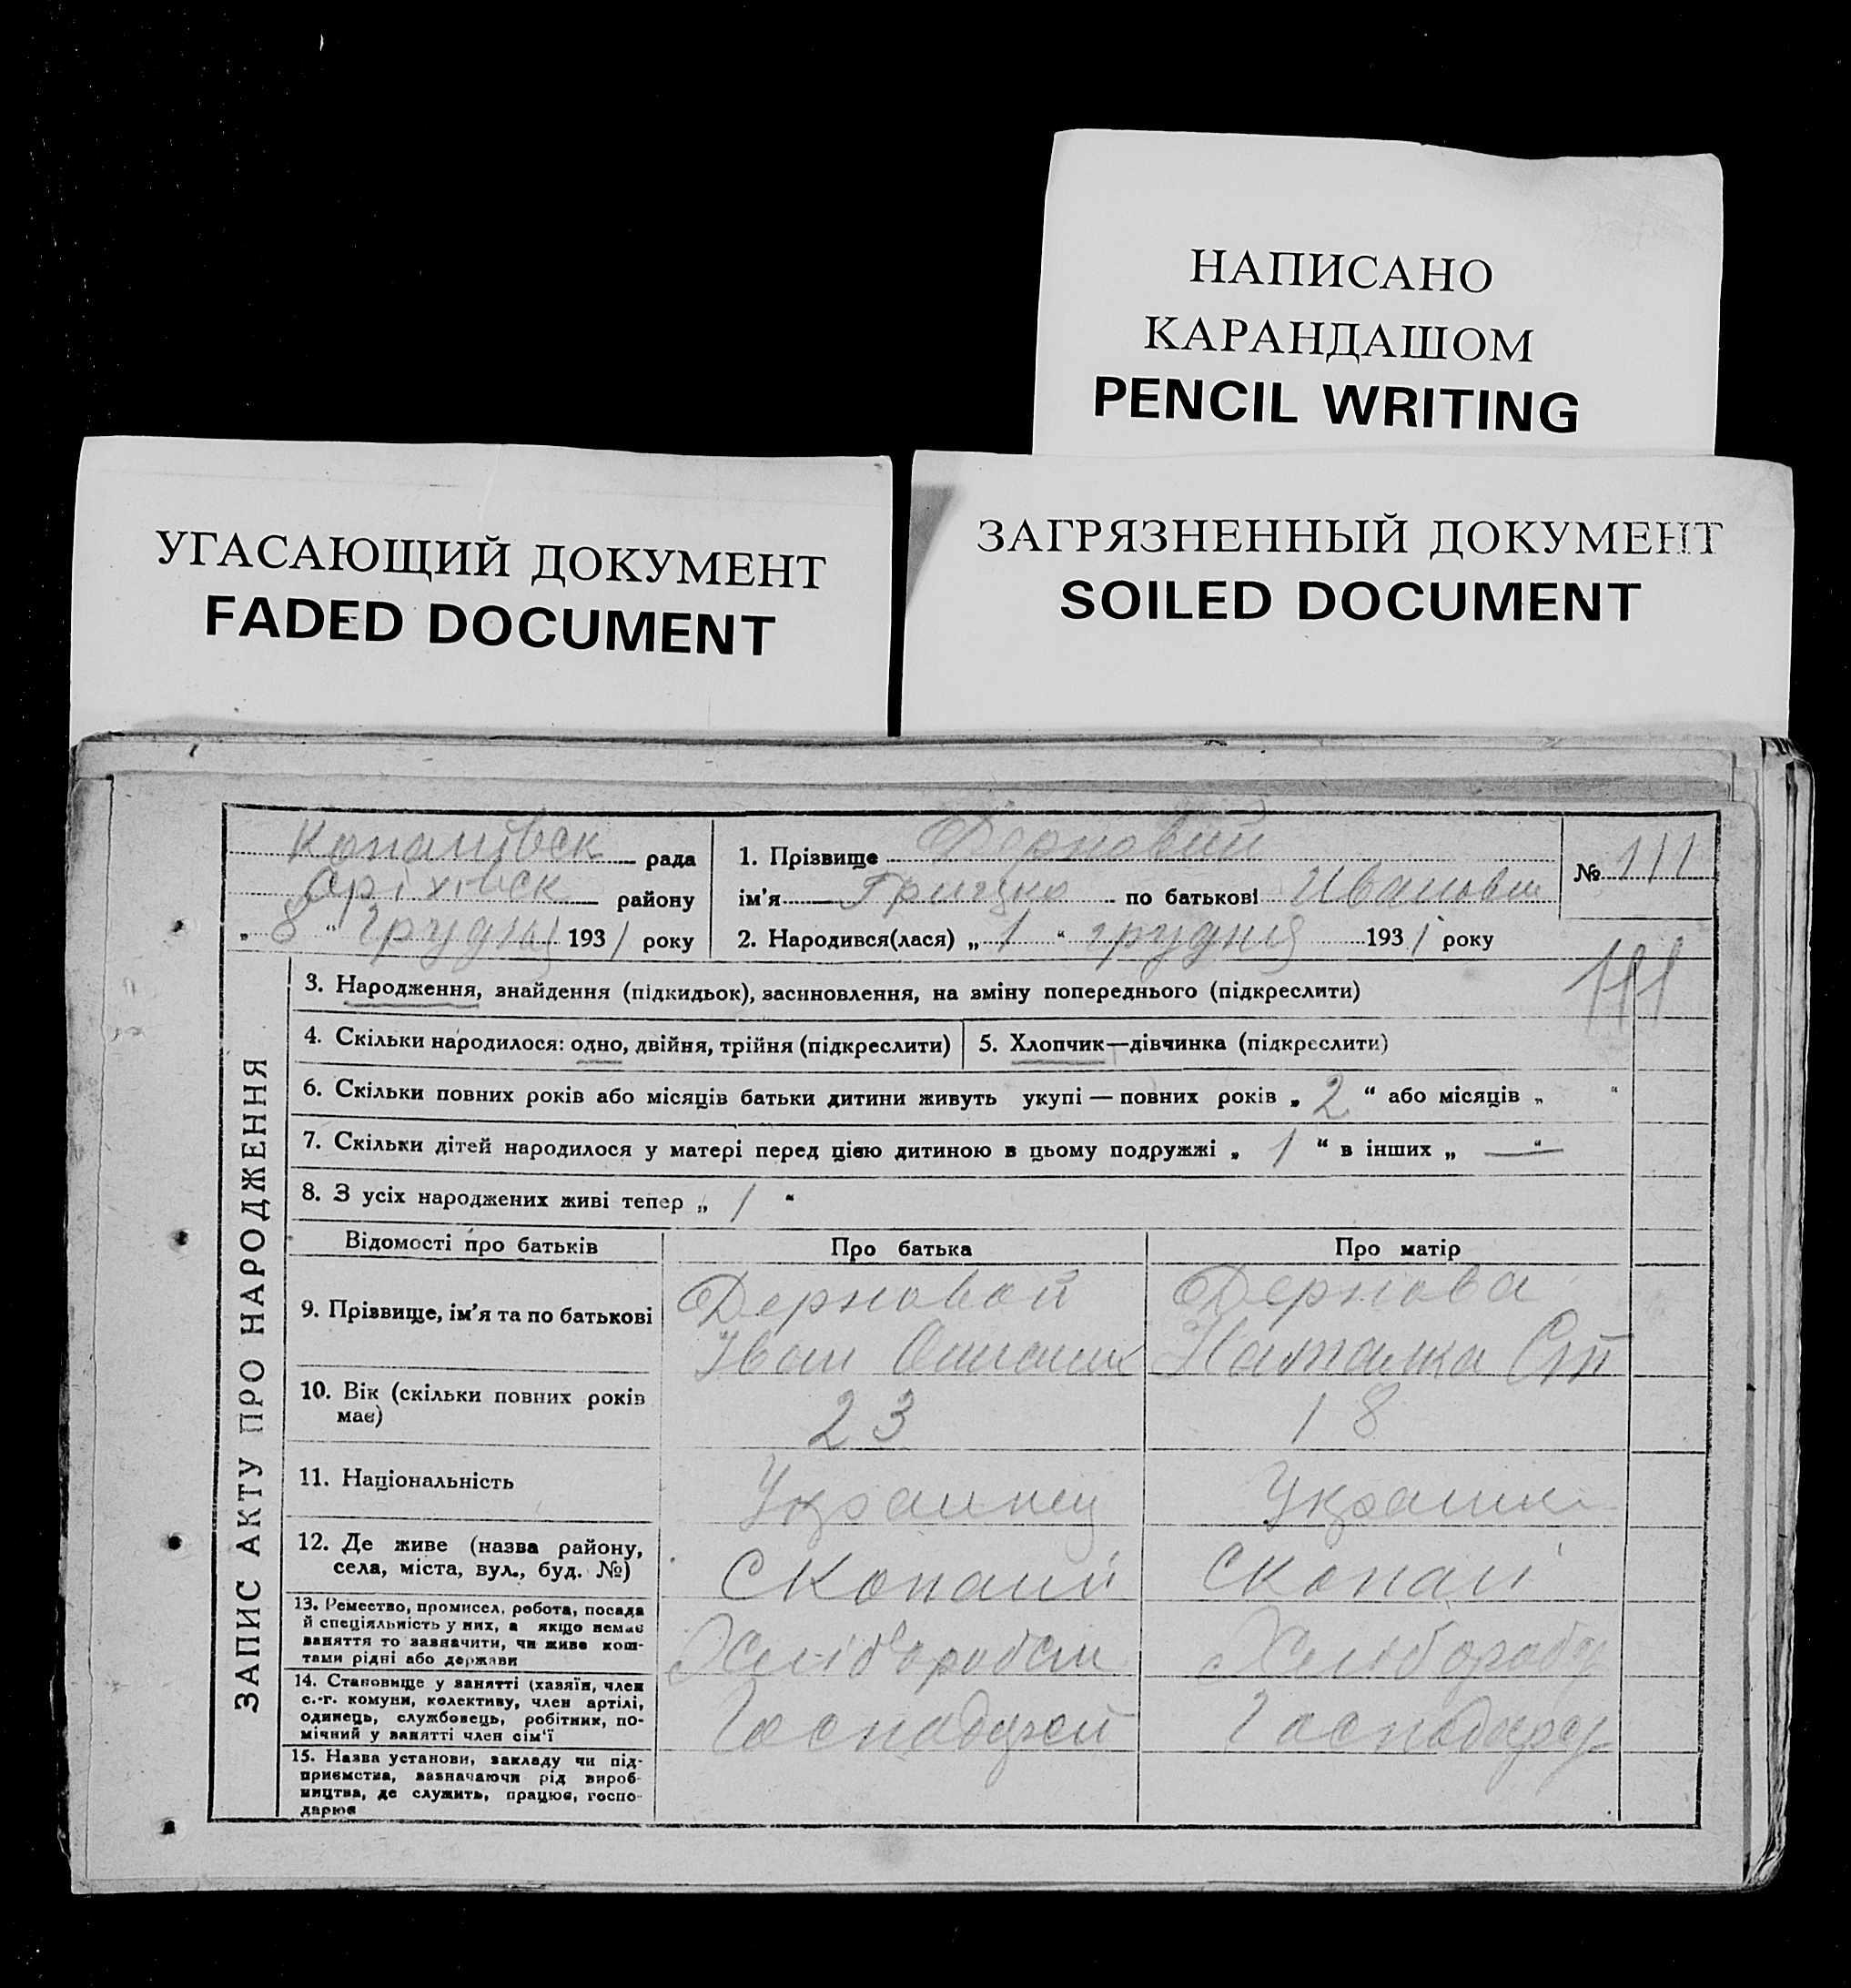 НАПИСАНО
КАРАНДАШОМ
PENCIL WRITING
УГАСАЮЩИЙ ДОКУМЕНТ
FADED DOCUMENT
ЗАГРЯЗНЕННЫЙ ДОКУМЕНТ
SOILED DOCUMENT
рада
району
„ 8 “ грудня 1931 року
1. Прізвище Дерновий
ім’я Грицко по батькові Иванович
2. Народився(лася) „ 1 “ грудня 1931 року
№ 111
111
ЗАПИС АКТУ ПРО НАРОДЖЕННЯ
3. Народження, знайдення (підкидьок), засиновлення, на зміну попереднього (підкреслити)
4. Скільки народилося: одно, двійня, трійня (підкреслити)
5. Хлопчик—дівчинка (підкреслити)
6. Скільки повних років або місяців батьки дитини живуть укупі — повних років „ 2 “ або місяців „ “
7. Скільки дітей народилося у матері перед цією дитиною в цьому подружжі „ 1 “ в інших „ — “
8. З усіх народжених живі тепер „ 1 “
Відомості про батьків
Про батька
Про матір
9. Прізвище, ім’я та по батькові
Дерновой
Іван
Дернова
Наталка
10. Вік (скільки повних років
має)
23
18
11. Національність
Украинец
12. Де живе (назва району,
села, міста, вул., буд. №)
С Копані
С Копані
13. Ремество, промисел, робота, посада
й спеціяльність у них, а якщо немає
заняття то зазначити, чи живе кош-
тами рідні або держави
14. Становище у занятті (хазяїн, член
с.-г. комуни, колективу, член артілі,
одинець, службовець, робітник, по-
мічний у занятті член сім’ї
15. Назва установи, закладу чи під-
приємства, зазначаючи рід вироб-
ництва, де служить, працює, госпо-
дарює